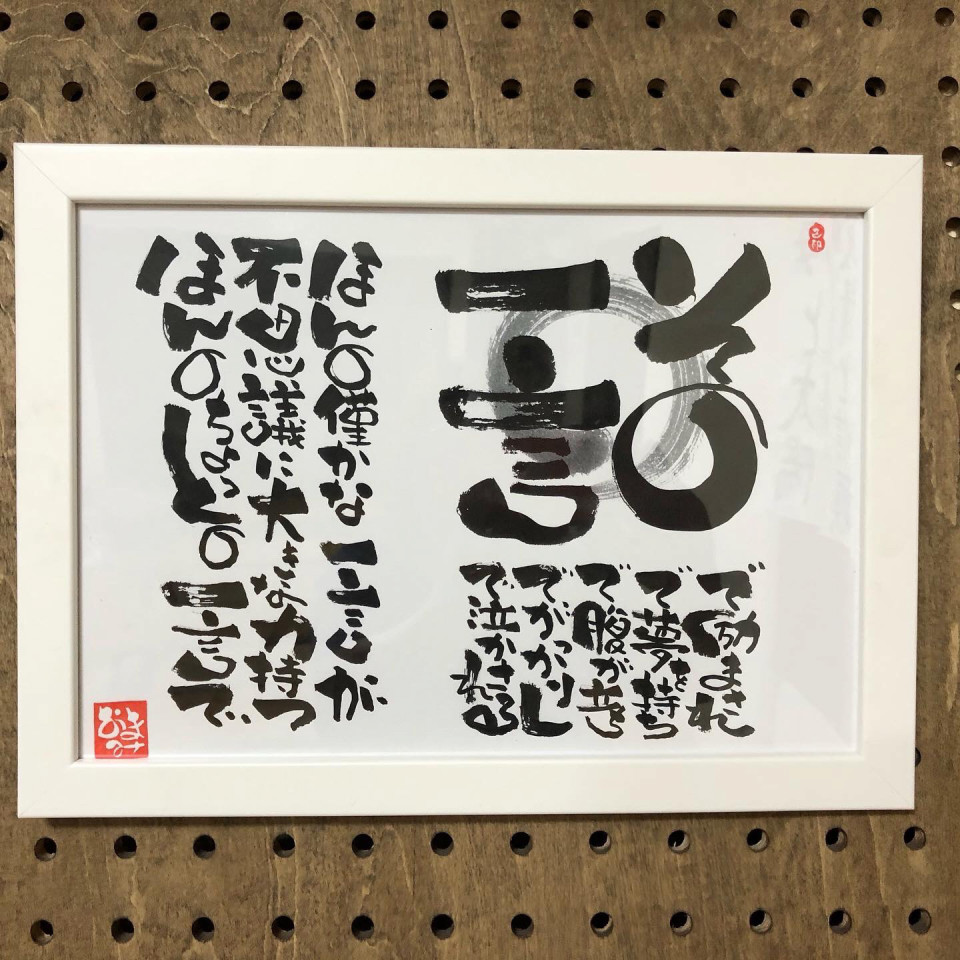 その
一言
で励まされ
で夢を持ち
で腹が立ち
でがっかりし
で泣かされる
ほんの僅かな一言が
不思議に大きな力持つ
ほんのちょっとの一言で